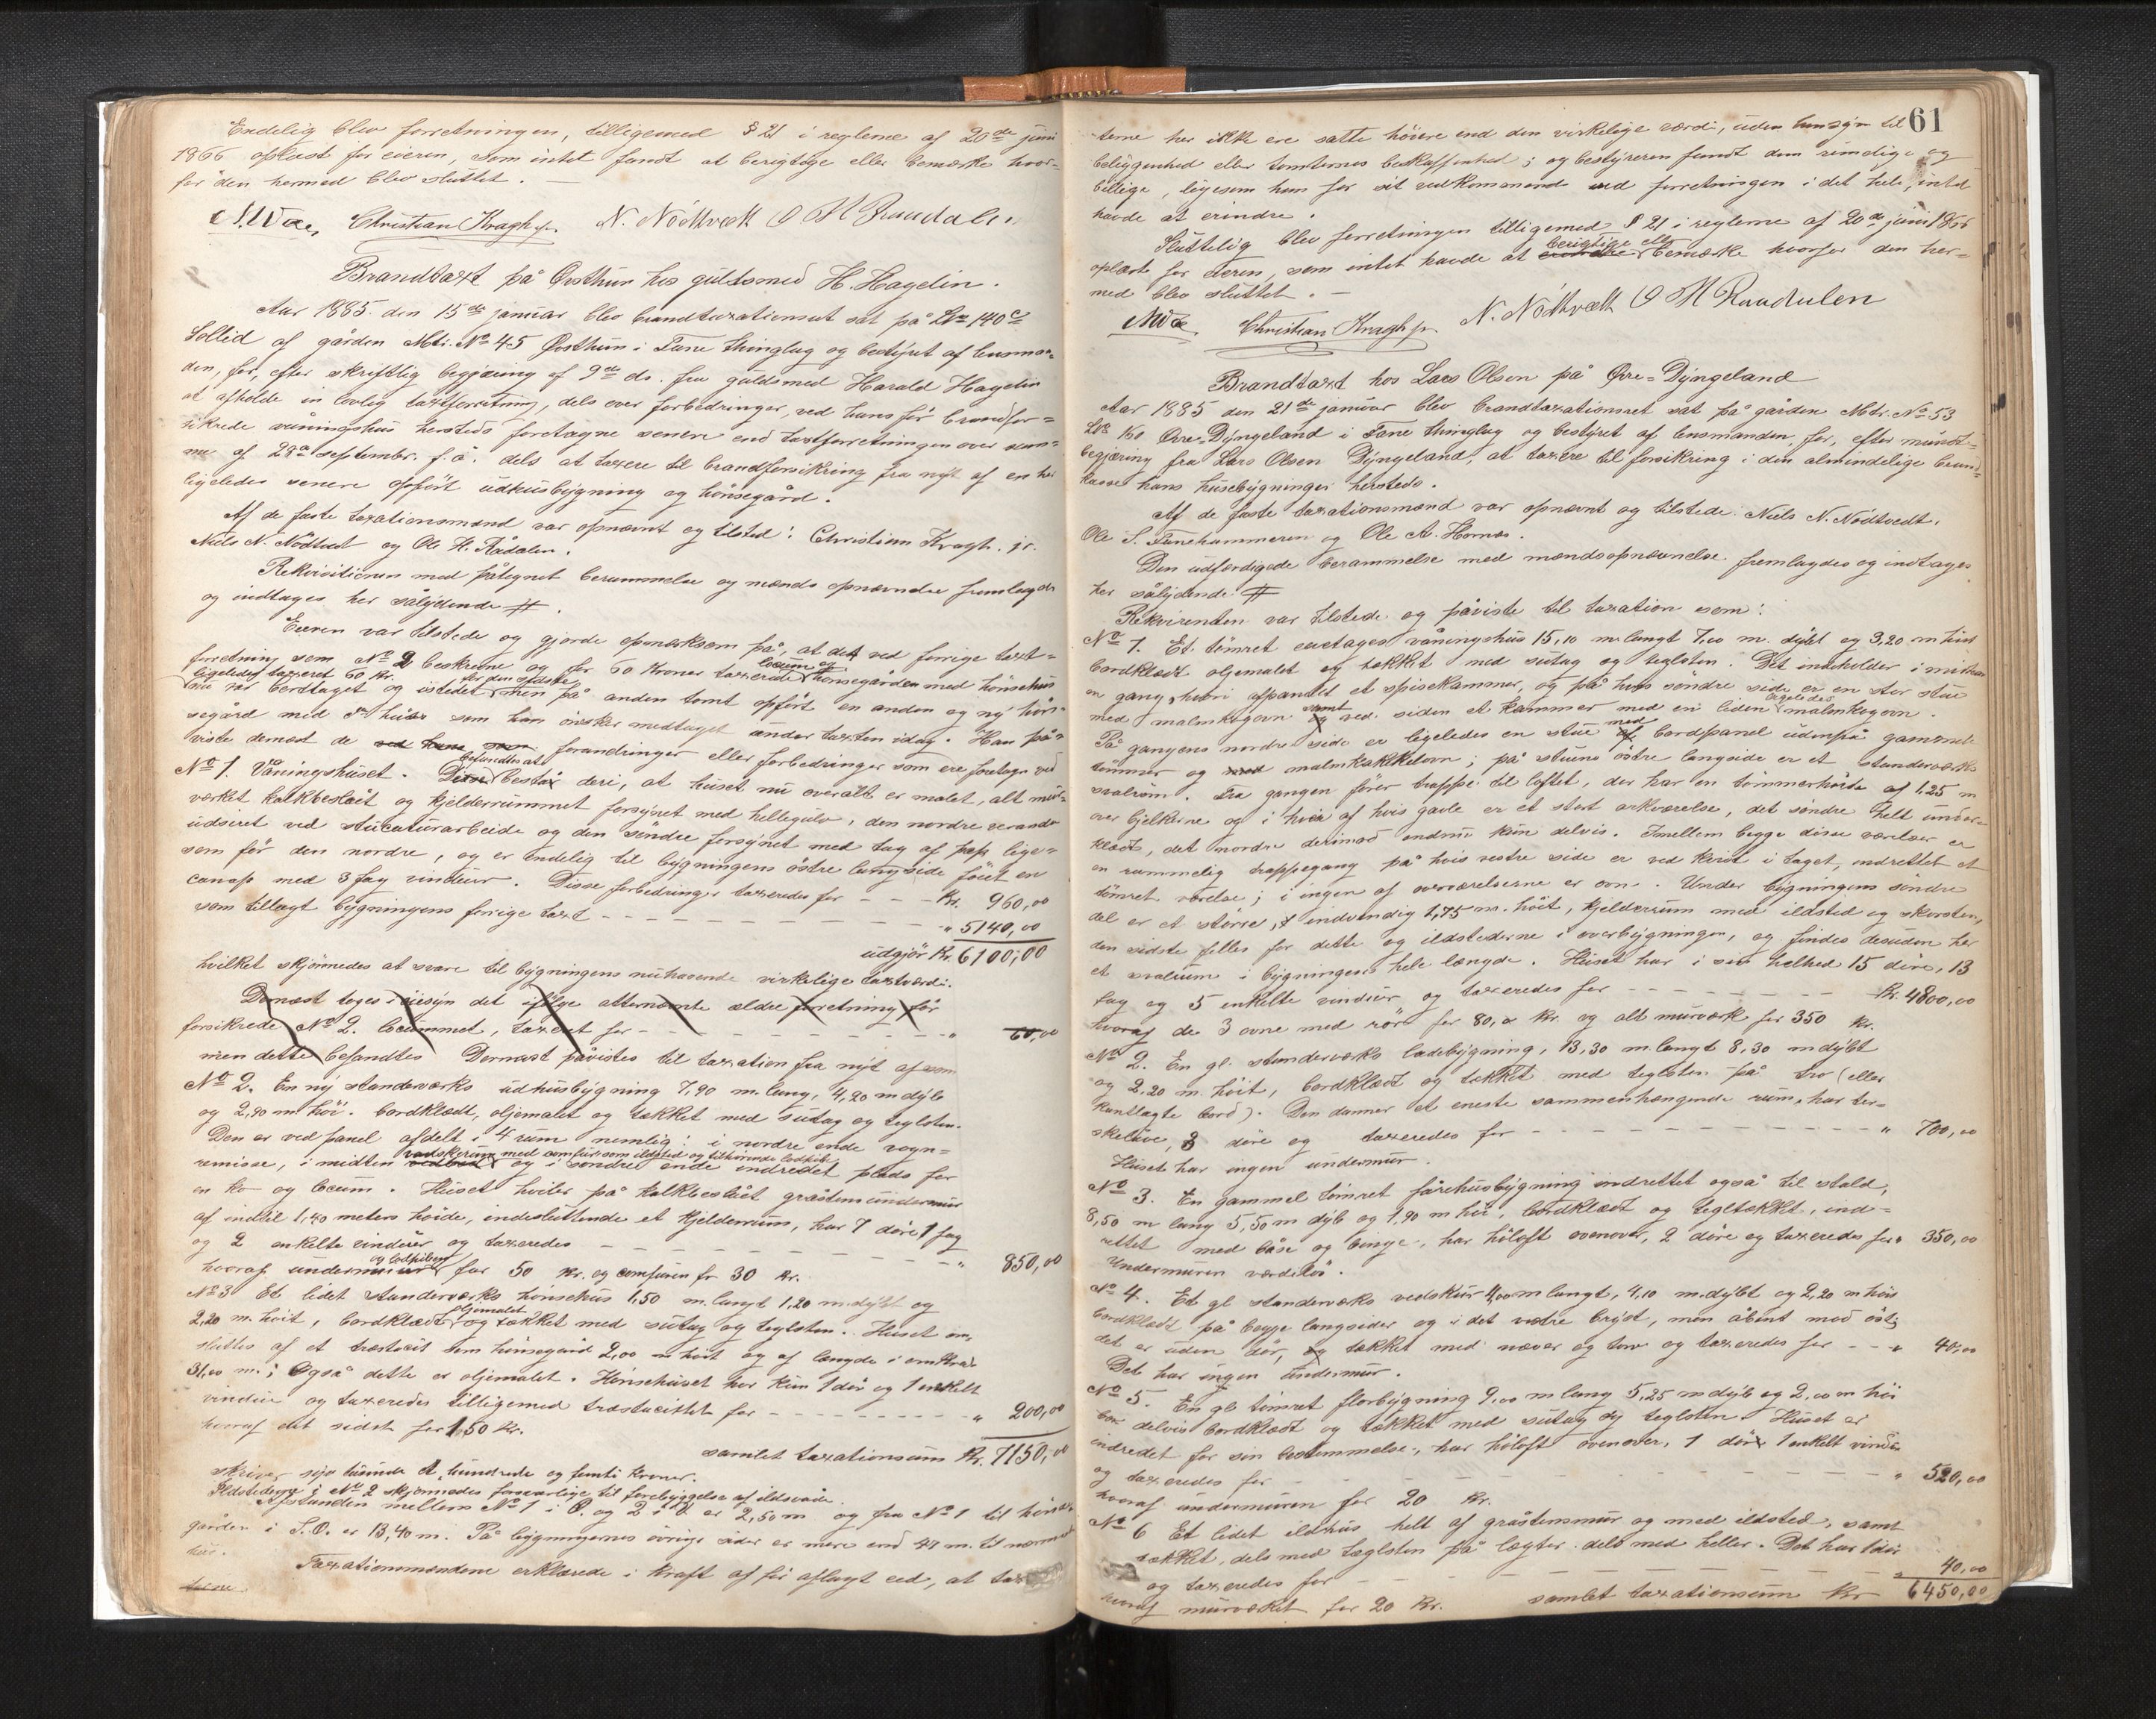 Endelig blev forretningen, tilligemed § 21 i reglerne af 20de juni
1866 oplæst for eieren, som intet fandt at berigtige eller bemærke hvor-
for den hermed blev sluttet. —
Christian Kragh jr. N. Nödtvedt O H Raadalen
Brandtaxt på Øvsthun hos guldsmed H. Hagelin.
Aar 1885 den 15de januar blev brandtaxationsret sat på Lnr 140c
Sollid af gården Mtr. No 45 Øvsthun i Fane thinglag og bestyret af lensman-
den, for, efter skriftlig begjæring af 9de ds. fra guldsmed Harald Hagelin
at afholde en lovlig taxtforretning, dels over forbedringer, ved hans för brandfor-
sikrede våningshus hersteds foretagne senere end taxtforretningen over sam-
me af 28de septembr. f. å. dels at taxere til brandforsikring fra nyt af en her
ligeledes senere opfört udhusbygning og hönsegård.
Af de faste taxationsmænd var opnævnt og tilsted: Christian Kragh. jr.
Niels N. Nödtvedt og Ole H. Rådalen.
Rekvisitionen med påtegnet berammelse og mænds opnævnelse fremlagdes
og indtages her sålydende #.
Eieren var tilstede og gjorde opmærksom på, at det ved forrige taxt-
forretning som No 2 beskrevne og for 60 Kroner taxerede locum og hönsegården med hönsehus
ligeledes taxeret 60 Kr. nu var borttaget og istedet for den sidste men på anden tomt opfört en anden og ny hön-
segård med hus som han önsker medtaget under taxten idag. Han på-
viste dernæst de forandringer eller forbedringer som ere foretagne ved
No 1. Våningshuset. Disse befandtes at bestå deri, at huset nu overalt er malet, alt mur-
værket kalkbeslået og kjelderrummet forsynet med hellegulv, den nordre veranda
udseret ved stucaturarbeide og den söndre forsynet med tag af pap lige-
som för den nordre, og er endelig til bygningens östre langside föiet en
canap med 3 fag vinduer. Disse forbedringer taxeredes for - - - Kr. 960,00
som tillagt bygningens forrige taxt - - - " 5140,00
udgjör Kr. 6100,00
hvilket skjönnedes at svare til bygningens nuhavende virkelige taxtværdi.
Dernæst toges i öiesyn det ifölge atternævnte ældre forretning för
forsikrede No 2. Locummet, taxeret for - - - " 60,00
men dette befandtes Dernæst påvistes til taxation fra nyt af som
No 2. En ny standerværks udhusbygning 7,90 m. lang, 4,20 m dyb
og 2,90 m. höi. bordklædt, oljemalet og tækket med sutag og teglsten.
Den er ved panel afdelt i 4 rum nemlig: i nordre ende vogn-
remisse, i midten vedskerum med comfur som ildsted og tilhörende lodpibe og i söndre ende indredet plads for
en ko og locum. Huset hviler på kalkbeslået gråstensundermur
af indtil 1,40 meters höide, indesluttende et kjelderrum, har 7 döre 1 fag
og 2 enkelte vinduer og taxeredes - - - " 850,00
hvoraf undermuren og lodpiben for 50 Kr. og comfuren for 30 Kr.
No 3 Et lidet standerværks hönsehus 1,50 m. langt 1,20 m. dybt og
2,20 m. höit, bordklædt oljemalet og tækket med sutag og teglsten. Huset om-
sluttes af et træstacit som hönsegård 2,00 m höit og af længde i omkreds
31,00 m.; Også dette er oljemalet. Hönsehuset har kun 1 dör og 1 enkelt
vindue og taxeredes tilligemed træstacittet for - - - " 200,00
hvoraf det sidste for 150 Kr.
samlet taxationssum Kr. 7150,00
skriver syv tusinde et hundrede og femti Kroner.
Ildstederne i No 2 skjönnedes forsvarlige til forebyggelse af ildsvåde.
Afstanden mellem No 1 i O. og 2 i V er 2,50 m og fra No 1 til hönse-
gården i S.O. er 13,40 m. På bygningernes övrige sider er mere end 47 m. til nærmeste
hus.
Taxationsmændene erklærede i kraft af för aflagt eed, at tax-
terne
61
terne her ikke ere satte höiere end den virkelige værdi, uden hensyn til
beliggenhed eller tomternes beskaffenhed; og bestyreren fandt dem rimelige og
billige, ligesom han for sit vedkommende ved forretningen i det hele, intet
havde at erindre.
Sluttelig blev forretningen tilligemed § 21 i reglerne af 20de juni 1866
oplæste for eieren, som intet havde at erindre berigtige eller bemærke hvorfor den her-
med blev sluttet. —
Christian Kragh jr. N. Nödtvedt O H Raadalen
Brandtaxt hos Lars Olsen på Övre-Dyngeland
Aar 1885 den 21de januar blev brandtaxationsret sat på gården Mtr. No 53
Övre-Dyngeland i Fane thinglag og bestyret af lensmanden, for, efter mundt-
begjæring fra Lars Olsen Dyngeland, at taxere til forsikring i den almindelige brand-
kasse hans husebygninger hersteds.
Af de faste taxationsmænd var opnævnt og tilstede Niels N. Nödtvedt,
Ole S. Fanehammeren og Ole A. Hornæs.
Den udfærdigede berammelse med mændsopnævnelse fremlagdes og indtages
her sålydende #
Rekvirenten var tilstede og påviste til taxation som:
No 1. Et tömret enetages våningshus 15,10 m langt 7,00 m. dybt og 3,20 m höit
bordklædt oljemalet og tækket med sutag og teglsten. Det indeholder i midten
en gang, hvori afpanelt et spisekammer, og på hvis söndre side er en stor stue
med malmkogovn samt ved siden et kammer med en liden ligeledes malmkogovn.
På gangens nordre side er ligeledes en stue med bordpanel udenpå gammelt
tömmer og malmkakkelovn; på stuens östre langside er et standerværks
svalrom. Fra gangen förer trappe til loftet, der har en tömmerhöide af 1,25 m
over bjelkerne og i hver af hvis gavle er et stort arkværelse, det söndre helt under-
klædt, det nordre derimod endnu kun delvis. Imellem begge disse værelser er
en rummelig trappegang på hvis vestre side er ved kvist i taget, indrettet et
tömret værelse; i ingen af overværelserne er ovn. Under bygningens söndre
del er et större, indvendig 1,75 m. höit, kjelderrum med ildsted og skorsten,
den sidste fælles for dette og ildstederne i overbygningen, og findes desuden her
et svalrum i bygningens hele længde. Huset har i sin helhed 15 döre, 13
fag og 5 enkelte vinduer og taxeredes for - - - Kr. 4800,00
hvoraf de 3 ovne med rör for 80,00 Kr. og alt murværk for 350 Kr.
No 2. En gl. standerværks ladebygning, 13,30 m. langt 8,30 m dybt
og 2,20 m. höit, bordklædt og tækket med teglsten på tro (eller
kantlagte bord). Den danner et eneste sammenhængende rum, har ter-
skelåve, 3 döre og taxeredes for - - - " 700,00
Huset har ingen undermur.
No 3. En gammel tömret fårehusbygning indrettet også til stald,
8,50 m lang 5,50 m dyb og 1,90 m höi, bordklædt og tegltækket, ind-
rettet med båse og binge, har höloft ovenover, 2 döre og taxeredes for " 350,00
Undermuren værdilös.
No 4. Et gl standerværks vedskur 4,00 m langt, 4,10 m. dybt og 2,20 m höit
bordklædt på begge langsider og i det vestre bryst, men åbent mod öst;
det er uden dör, tækket med næver og torv og taxeredes for - - " 40,00
Det har ingen undermur.
No 5. En gl tömret florbygning 9,00 m lang 5,25 m dyb og 2,00 m höi
delvis bordklædt og tækket med sutag og teglsten. Huset er
indredet for sin bestemmelse, har höloft ovenover, 1 dör 1 enkelt vindue
og taxeredes for - - - " 520,00
hvoraf undermuren for 20 Kr.
No 6 Et lidet ildhus helt af gråstensmur og med ildsted, samt
tækket, dels med taglsten på lægter dels med heller. Det har 1 dör
og taxeredes for - - - " 40,00
hvoraf murværket for 20 Kr. samlet taxationssum Kr 6450,00